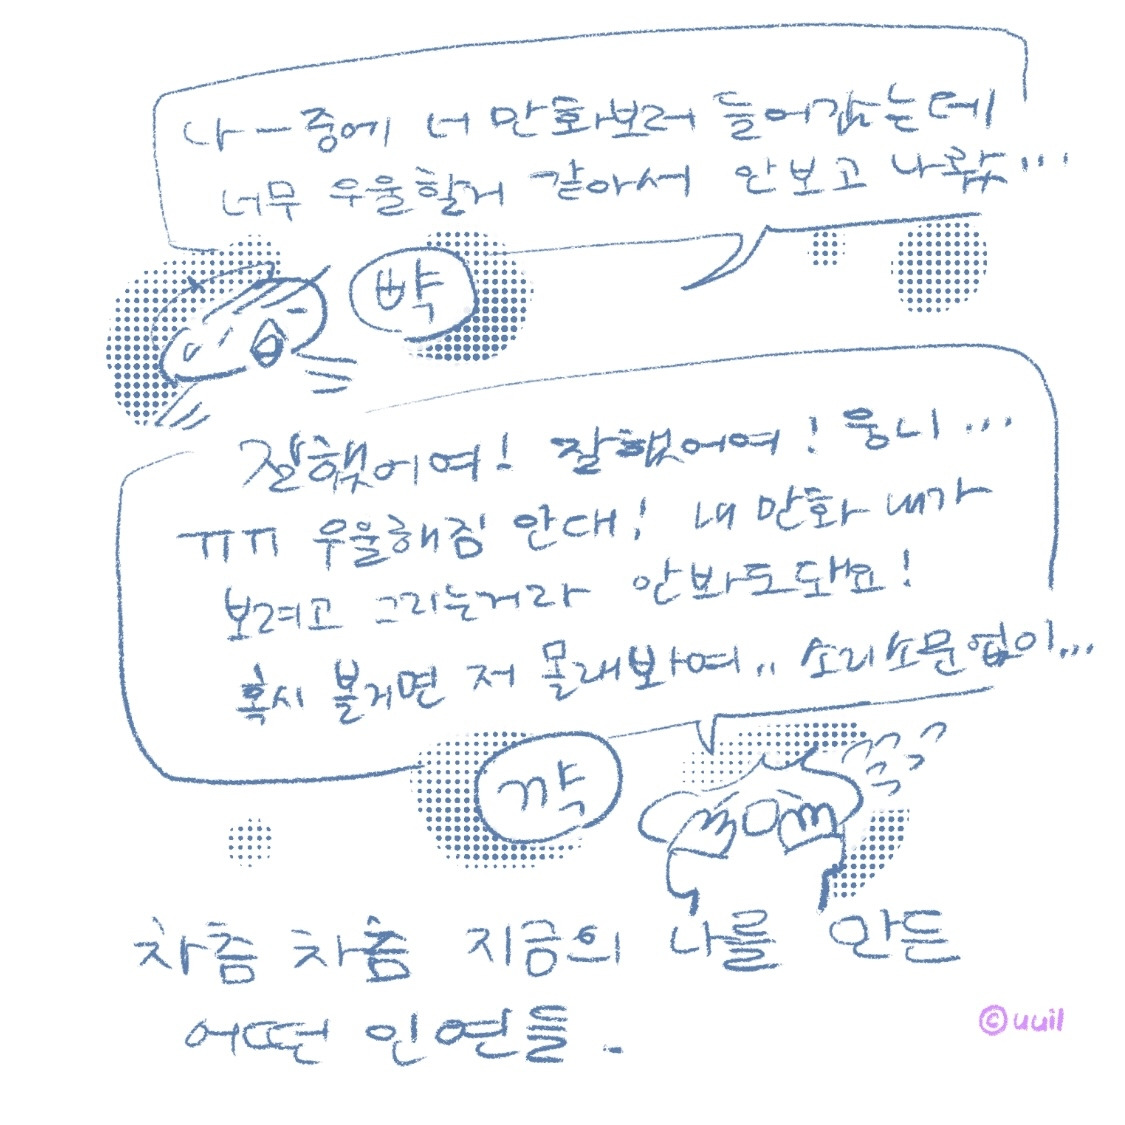 나 ㅡ중에 너 만화보러 들어갔는데
너무 우울할거 같아서 안보고 나왔...
뺙
잘했어여! 잘했어여! 웅니...
ㅠㅠ 우울해짐 안대! 내 만화 내가
보려고 그리는거라 안봐도돼요!
혹시 볼거면 저 몰래봐여.. 소리소문없이...
꺅
차츰 차츰 지금의 나를 만든
어떤 인연들.
©uuil